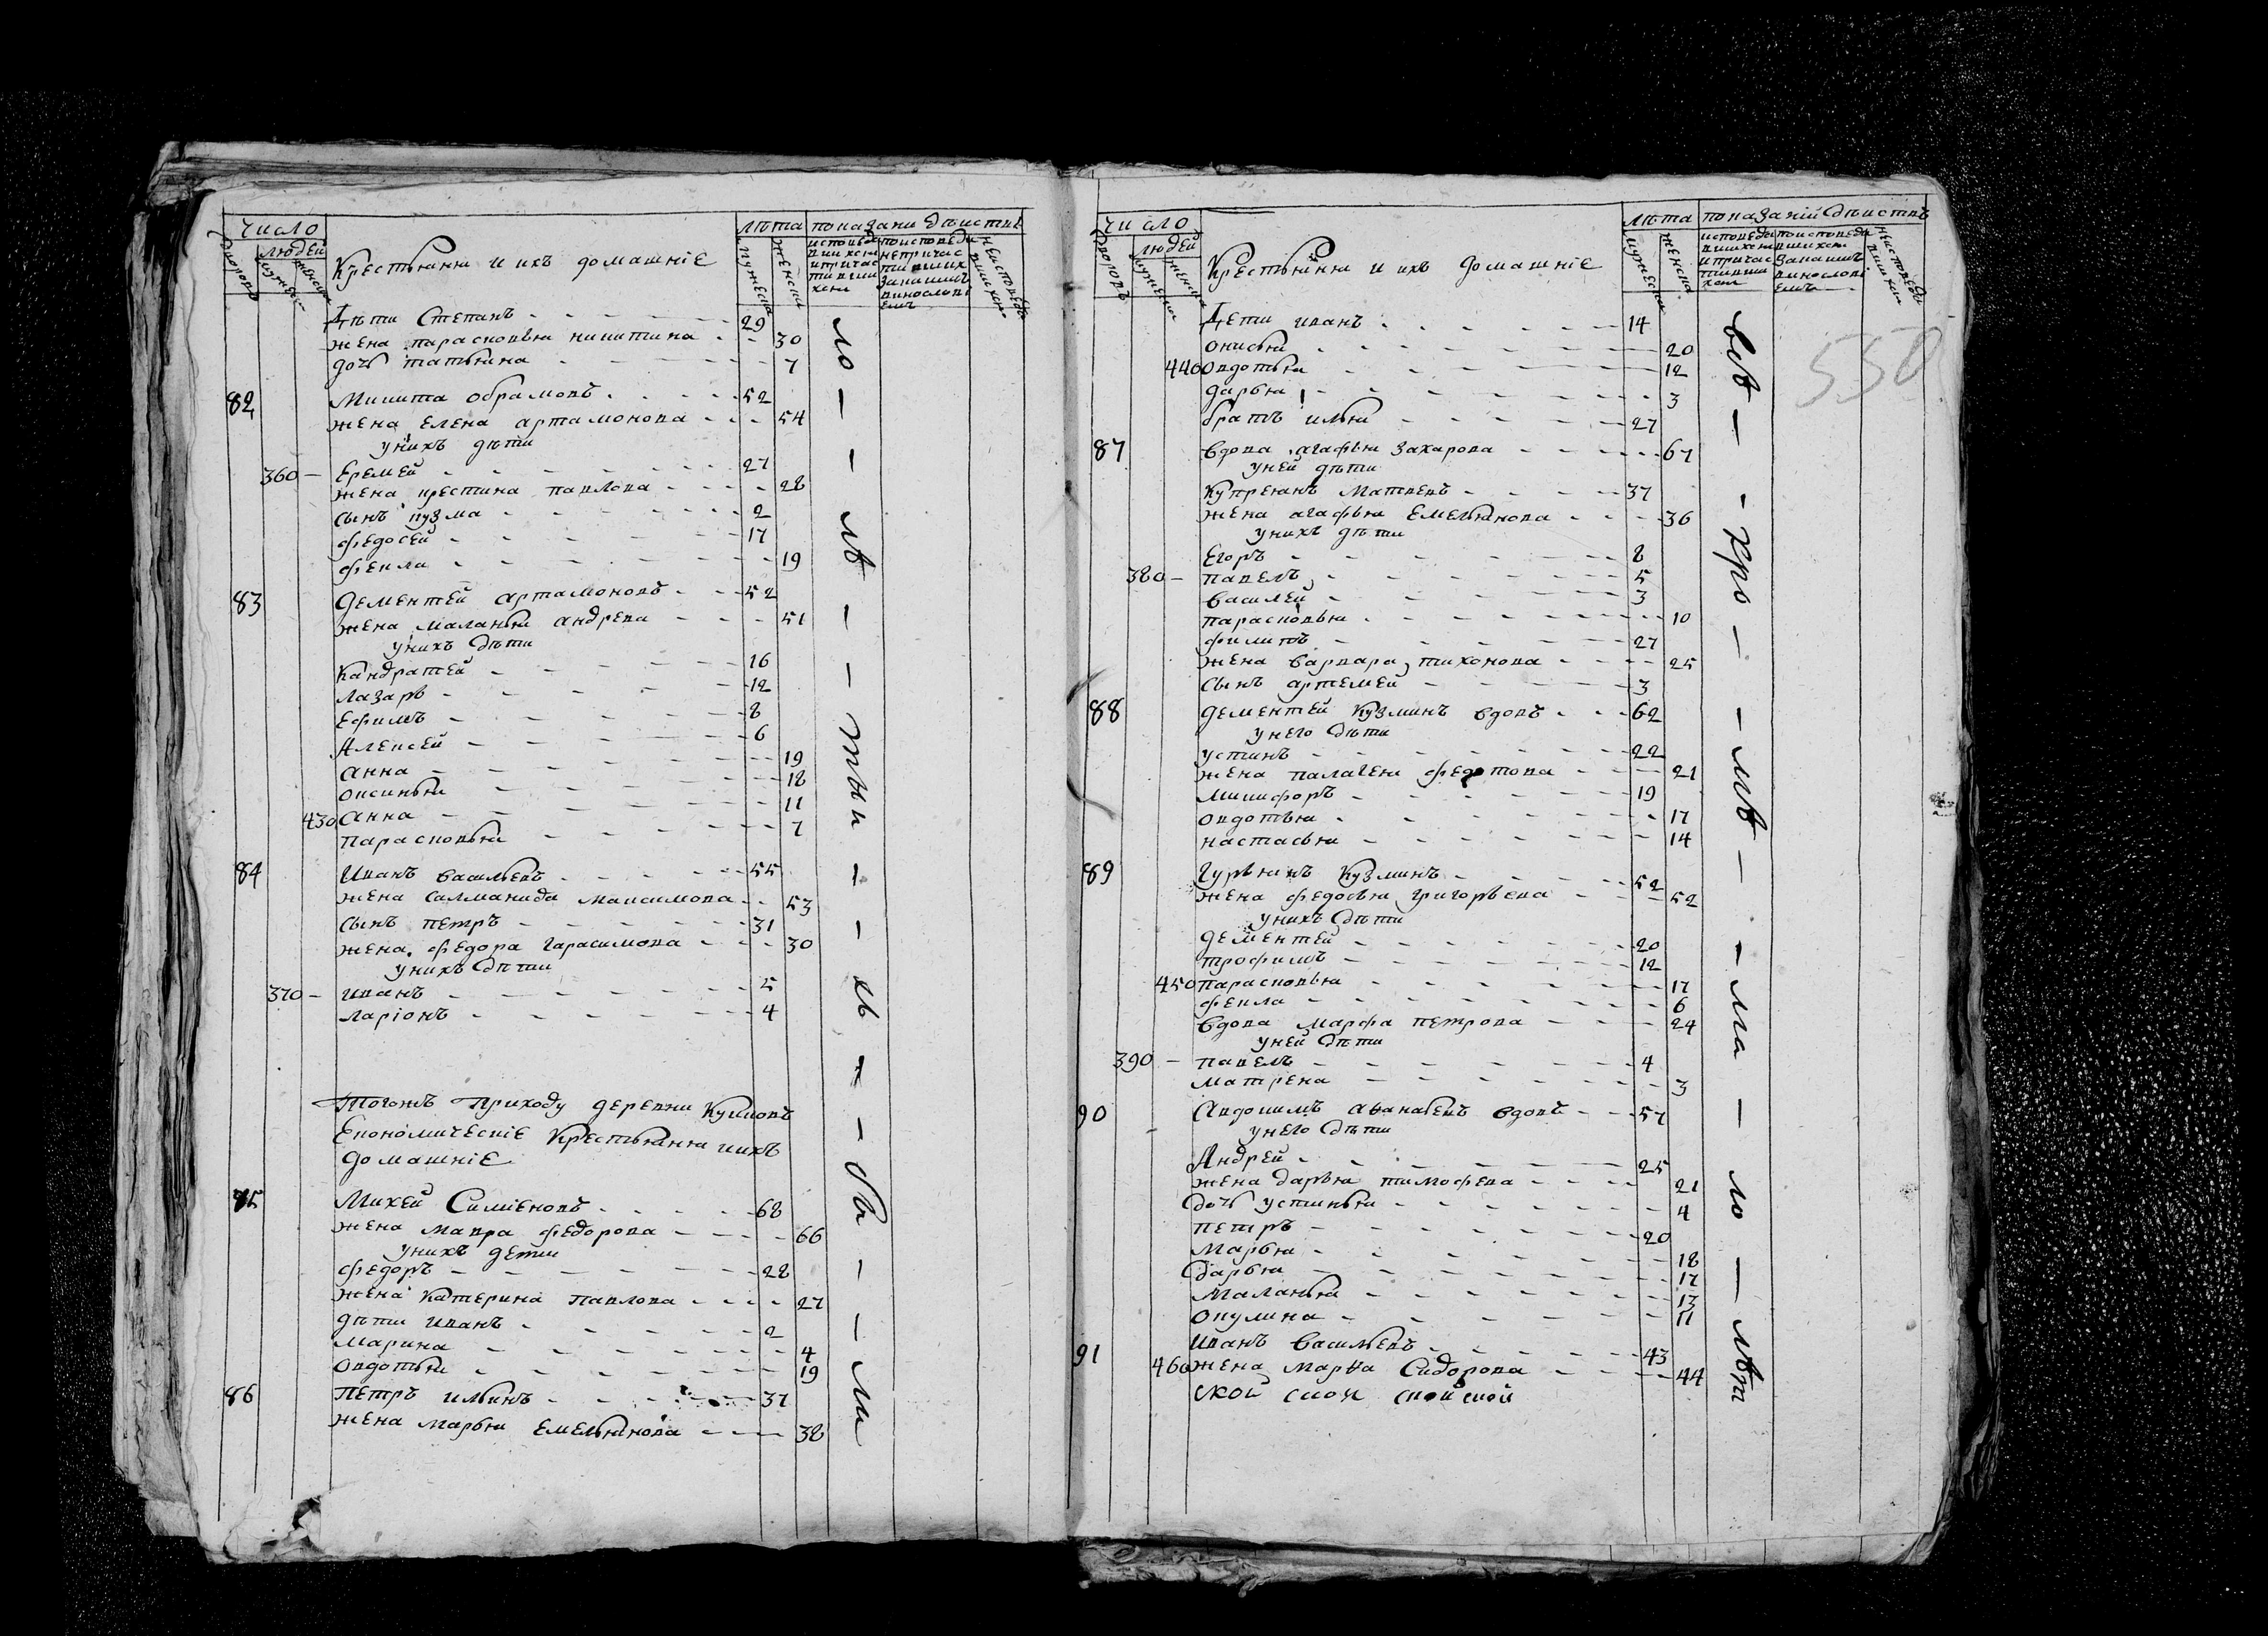 число
людей
дворовъ
мужеска
женска
Крестьяня и ихъ домашніе
лѣта
мужеска
женска
показани дѣиствъ
Дѣти Степанъ 29
жена парасковья никитина 30
дочь татьяна 7
82 Микита обрамовъ 52
жена Елена артамонова 54
у нихъ дѣти
360 Еремей 27
жена крестина павлова 28
сынъ кузма 2
федосей 17
фекла 19
83 Дементей артамоновъ 52
жена маланья андрева 51
у нихъ дѣти
Кандратей 16
лазаръ 12
Ефимъ 8
Алексей 6
анна 19
оксинья 18
430 анна 11
парасковья 7
84 Иванъ васильевъ 55
жена салманида максимова 53
сынъ петръ 31
жена федора гарасимова 30
у нихъ дѣти
370 иванъ 5
ларіонъ 4
Тогожъ приходу деревни
Економическіе Крестьяня и ихъ
домашніе
85 Михей Симіеновъ 68
жена мавра федорова 66
у нихъ дети
федоръ 28
жена катерина павлова 27
дѣти иванъ 2
марина 4
овдотья 19
86 Петръ ильинъ 37
жена марья емельянова 38
ло
лѣ
ми
число
людей
дворовъ
мужеска
женска
Крестьяня и ихъ домашніе
лѣта
мужеска
женска
показаній дѣиствъ
550
Дети иванъ 14
онисья 20
440 овдотья 12
дарья 3
братъ илья 27
87 вдова агафья захарова 67
у ней дѣти
Купреянъ матвевъ 37
жена агафья емельянова 36
у нихъ дѣти
Егоръ 8
380 павелъ 5
василей 3
парасковья 10
филипъ 27
жена варвара тихонова 25
сынъ артемей 3
88 Дементей Кузминъ вдовъ 62
у него дѣти
устинъ 22
жена палагея федотова 21
микифоръ 19
овдотья 17
настасья 14
89 Гурьянъ Кузминъ 52
жена федосья григорьева 52
у нихъ дѣти
дементей 20
трофимъ 12
450 парасковья 17
фекла 6
вдова марфа петрова 24
у ней дѣти
390 павелъ 4
матрена 3
90 Авдокимъ аѳанасьевъ вдовъ 57
у него дѣти
Андрей 25
жена дарья тимофева 21
дочь устинья 4
петръ 20
марья 18
дарья 17
маланья 13
окулина 11
91 иванъ васильевъ 43
460 жена марѳа Сидорова 44
лѣ
ло